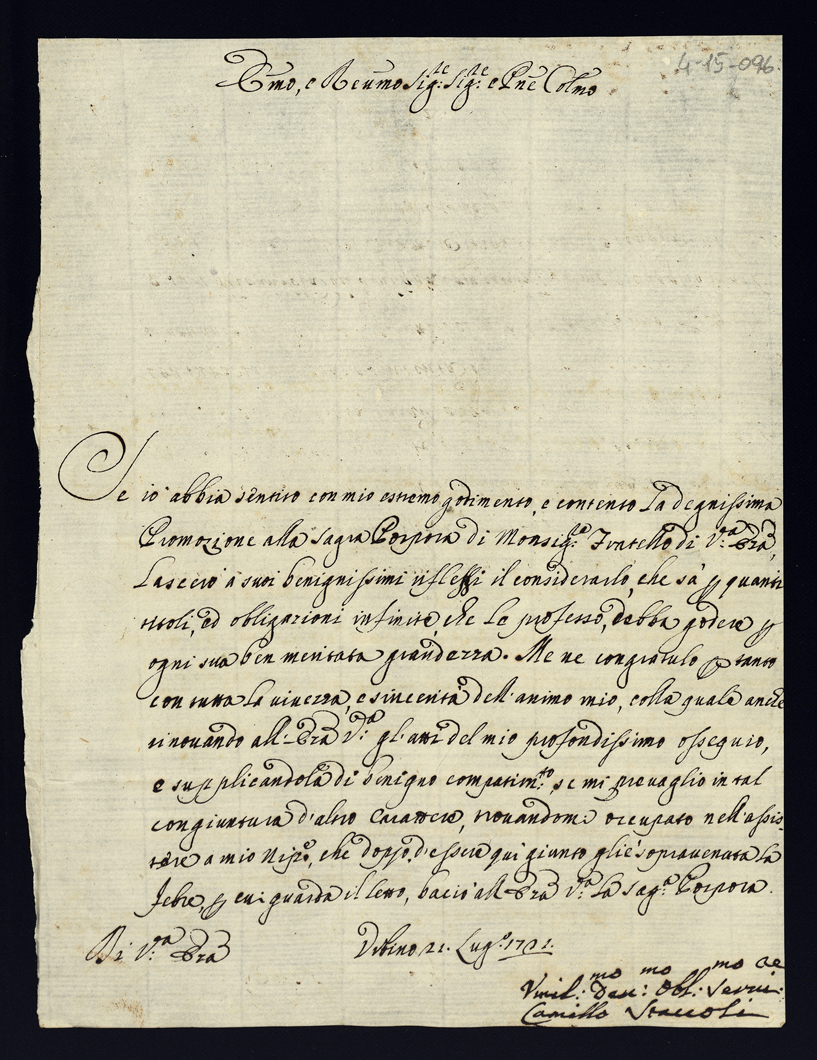 4-15-096.
Emo, e Reumo Sig:re Sig:re e Pne Colmo
Se io abbia sentito con mio estremo godimento, e contento la degnissima
Promozione alla Sagra Porpora di Monsig:re Fratello di V:ra Em̃a,
lascerò a' suoi benignissimi riflessi il considerarlo, che sà p quanti
titoli, ed obligazioni infinite, che Le professo, debba godere p
ogni sua ben meritata grandezza. Me ne congratulo p tanto
con tutta la vivezza, e sincerità dell'animo mio, colla quale anche
rinouando all'Em̃a V:ra gl'atti del mio profondissimo ossequio,
e supplicandola di benigno compatim:to, se mi preuaglio in tal
congiuntura d'altro Carattere, trouandomi occupato nell'assis-
tere a mio Nip:e, che doppo d'essere qui giunto gli è soprauenuta la
febre, p cui guarda il letto, bacio all'Em̃a V:ra la Sag:a Porpora.
Di V:ra Em̃a
Vrbino 21. Lug:o 1721.
Vmil:mo Deu:mo Obl:mo Serui:e
Camillo Staccoli